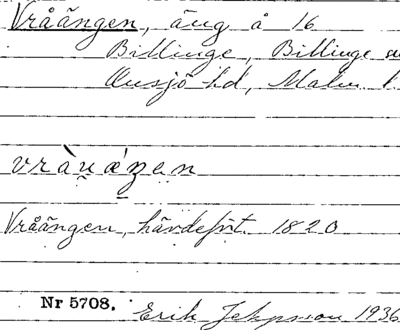 Vråängen, äng å 16
Billinge, Billinge
Onsjö hd, Malm
vrå̀u̯ǽŋen
Vråängen, hävdeprt. 1820
Nr 5708. Erik Jeppsson 1936